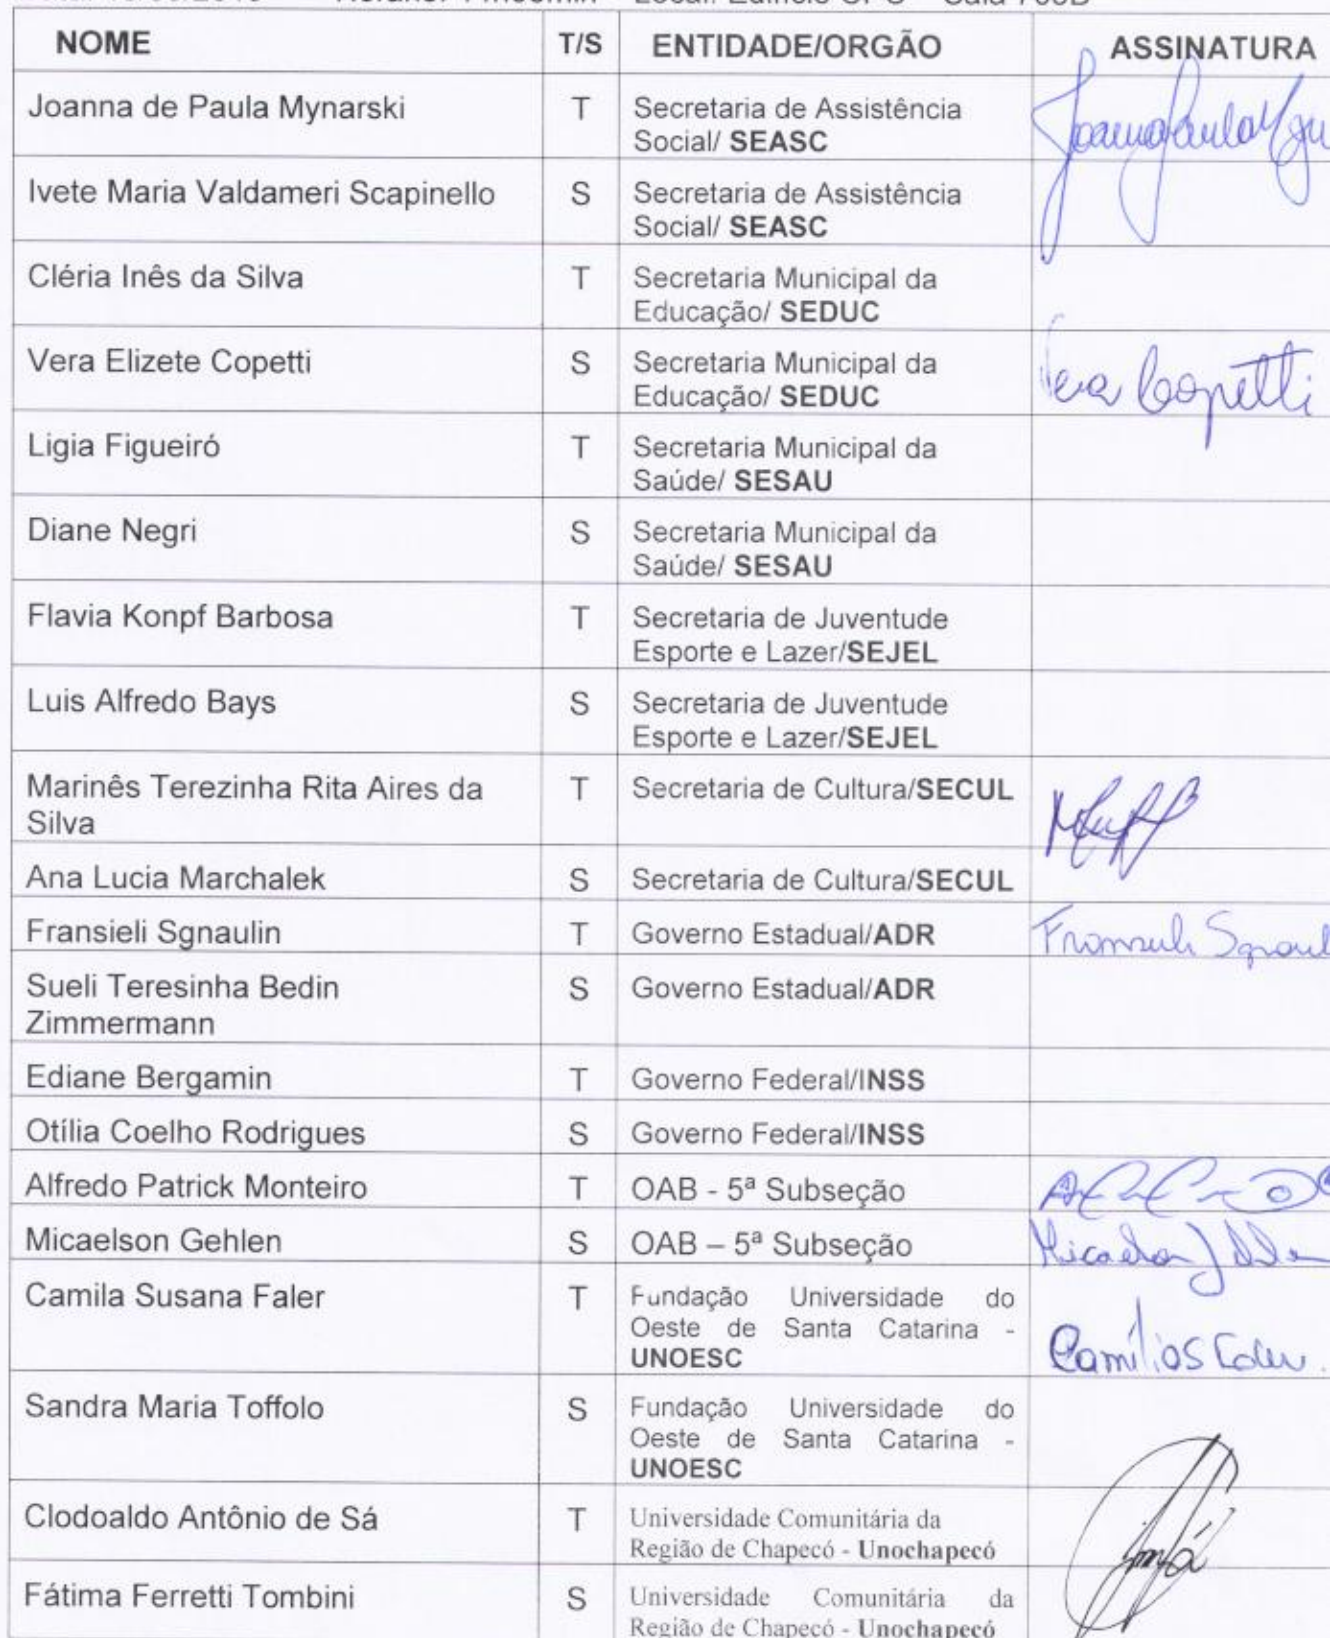 NOME T/S ENTIDADE/ORGÃO ASSINATURA
Joanna de Paula Mynarski T Secretaria de Assistência
Social/ SEASC
Ivete Maria Valdameri Scapinello S Secretaria de Assistência
Social/ SEASC
Cléria Inês da Silva T Secretaria Municipal da
Educação/ SEDUC
Vera Elizete Copetti S Secretaria Municipal da Vera Copetti
Educação/ SEDUC
Ligia Figueiró T Secretaria Municipal da
Saúde/ SESAU
Diane Negri S Secretaria Municipal da
Saúde/ SESAU
Flavia Konpf Barbosa T Secretaria de Juventude
Esporte e Lazer/SEJEL
Luis Alfredo Bays S Secretaria de Juventude
Esporte e Lazer/SEJEL
Marinês Terezinha Rita Aires da T Secretaria de Cultura/SECUL
Silva
Ana Lucia Marchalek S Secretaria de Cultura/SECUL
Fransieli Sgnaulin T Governo Estadual/ADR
Sueli Teresinha Bedin S Governo Estadual/ADR
Zimmermann
Ediane Bergamin T Governo Federal/INSS
Otília Coelho Rodrigues S Governo Federal/INSS
Alfredo Patrick Monteiro T OAB - 5ª Subseção
Micaelson Gehlen S OAB – 5ª Subseção
Camila Susana Faler T Fundação Universidade do
Oeste de Santa Catarina -
UNOESC
Sandra Maria Toffolo S Fundação Universidade do
Oeste de Santa Catarina -
UNOESC
Clodoaldo Antônio de Sá T Universidade Comunitária da
Região de Chapecó - Unochapecó
Fátima Ferretti Tombini S Universidade Comunitária da
Região de Chapecó - Unochapecó